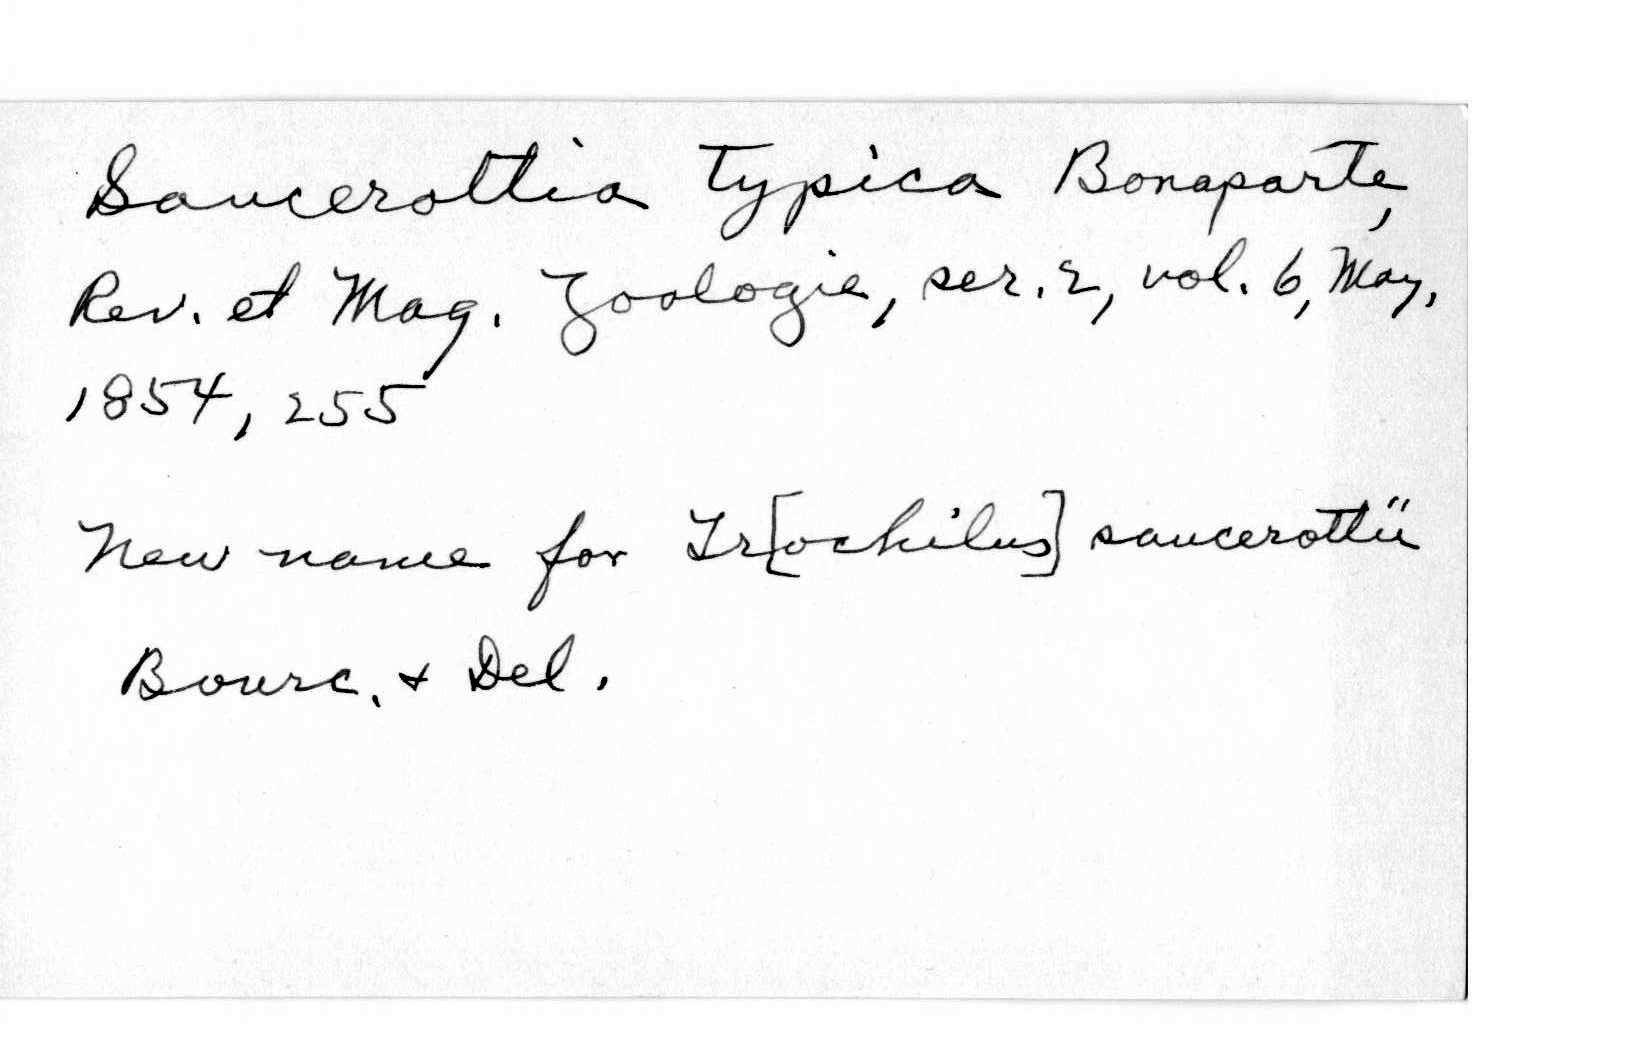 Saucerottia typica Bonaparte,
Rev. et Mag. Zoologie, ser. 2, vol. 6, May,
1854, 255
New name for Tr[ochilus] saucerottii
Bourc. & Del.